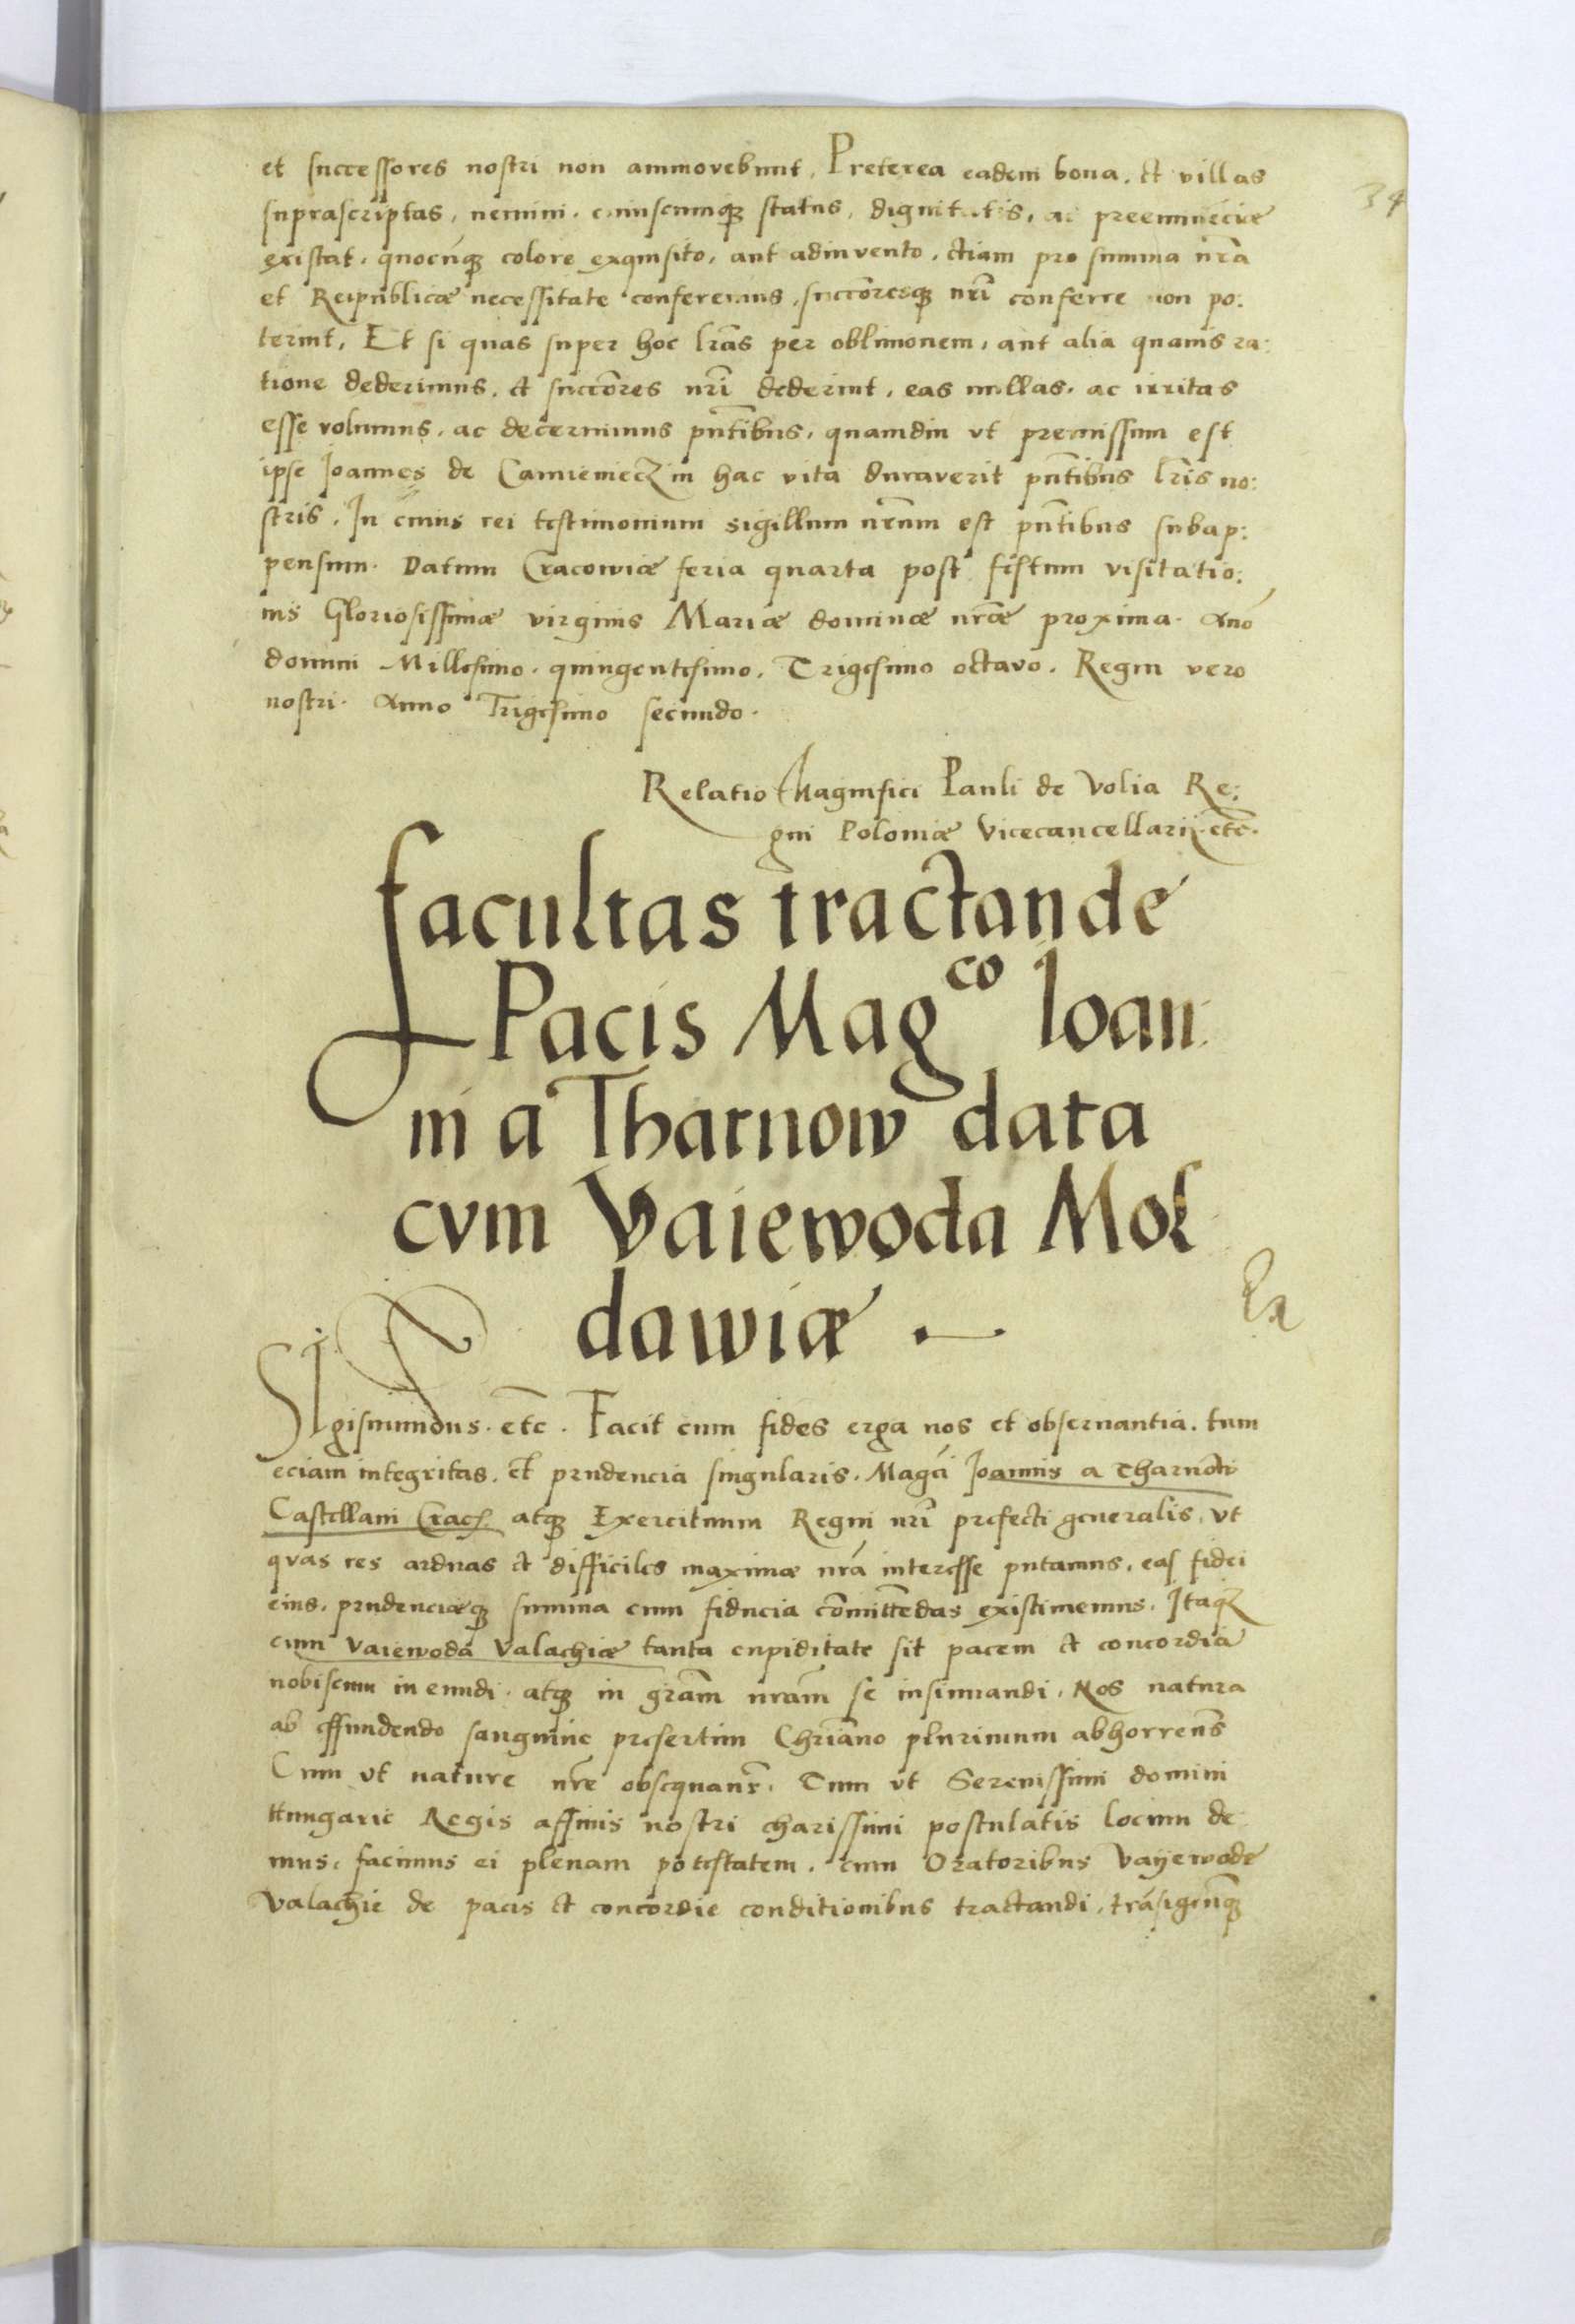 34
et successores nostri non ammovebunt. Preterea eadem bona. et villas
suprascriptas, nemini. cuiuscumqꝫ status, dignitatis, ac preeminēcie
existat. quocūqꝫ colore exquisito, aut adinvento, etiam pro summa nrā
et Reipublicæ necessitate conferemus, succōresqꝫ nrī conferre non po:
terint, Et si quas super hoc lrās per oblivionem, aut alia quavis ra:
tione dederimus, et succōres nrī dederint, eas nullas, ac irritas
esse volumus, ac decernimus pn̄tibus, quamdiu vt premissum est
ipse Joannes de Camieniecz in hac vita duraverit pn̄tibus lrīs no:
stris. In cuius rei testimonium sigillum nrūm est pn̄tibus subap:
pensum. Datum Cracowiæ feria quarta post festum visitatio:
nis Gloriosissimæ virginis Mariæ dominæ nrē proxima. Anō
domini Millesimo. quingentesimo. Trigesimo octavo. Regni vero
nostri. Anno Trigesimo secundo.
Relatio Magnifici Pauli de Volia Re:
gni Poloniæ Vicecancellarij. etc̄.
facultas tractande
Pacis Mag^co Ioan
ni a Tharnow data
cvm Vaiewoda Mol
dawiæ .
SIgismundus. etc̄. Facit cum fides erga nos et obseruantia. tum
eciam integritas. et prudencia singularis. Magci Joannis a Tharnow
Castellani Crac. atqꝫ Exercituum Regni nrī prefecti generalis, vt
qvas res arduas et difficiles maximæ nrā interesse putamus, eas fidei
eius. prudenciæqꝫ summa cum fiducia cōmittēdas existimemus. Itaqꝫ
cum Vaiewoda Valachiæ tanta cupiditate sit pacem et concordiā
nobiscum in eundi. atqꝫ in grām nrām se insinuandi. Nos natura
ab effundendo sanguine presertim Chriāno plurimum abhorrens
Cum vt nature nrē obsequamr̄. Tum vt Serenissimi domini
Hungarie Regis affinis nostri charissimi postulatis locum de
mus. facimus ei plenam potestatem. cum Oratoribus Vayewode
Valachie de pacis et concordie conditionibus tractandi, trāsigendiqꝫ